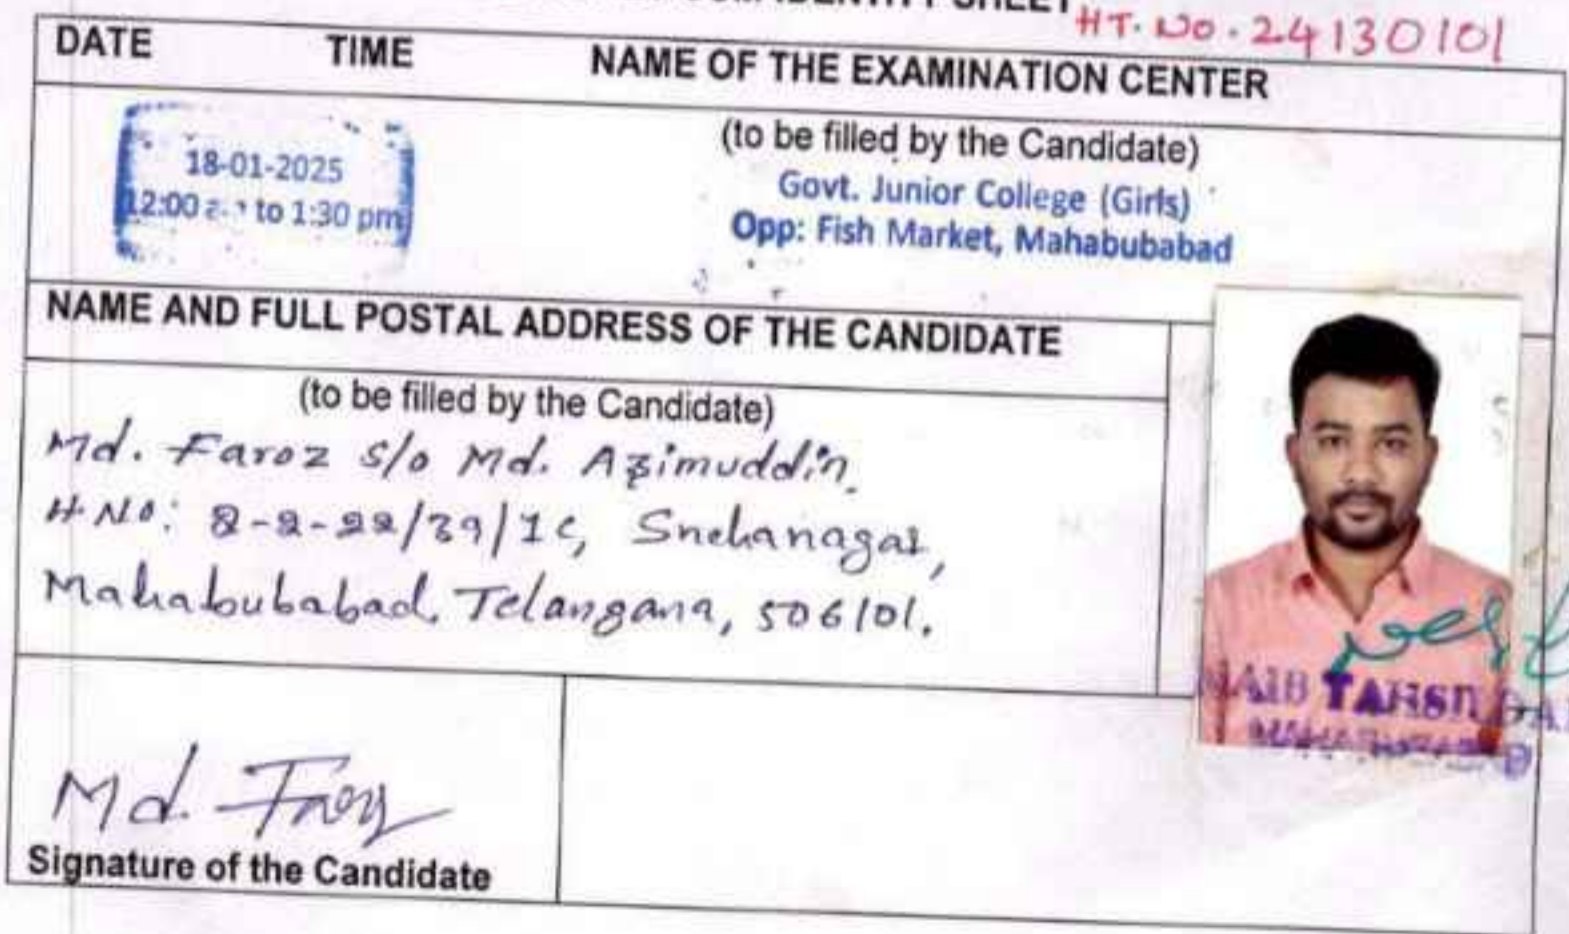 IDENTITY SHEET
HT. No. 24130101
DATE TIME NAME OF THE EXAMINATION CENTER
(to be filled by the Candidate)
18-01-2025
12:00 to 1:30 pm
Govt. Junior College (Girls)
Opp: Fish Market, Mahabubabad
NAME AND FULL POSTAL ADDRESS OF THE CANDIDATE
(to be filled by the Candidate)
Md. Faroz S/o Md. Azimuddin.
H.No: 2-2-22/39/1C, Snehanagar,
Mahabubabad, Telangana, 506101.
NAIB TAHSILDAR
Md. Faroz
Signature of the Candidate